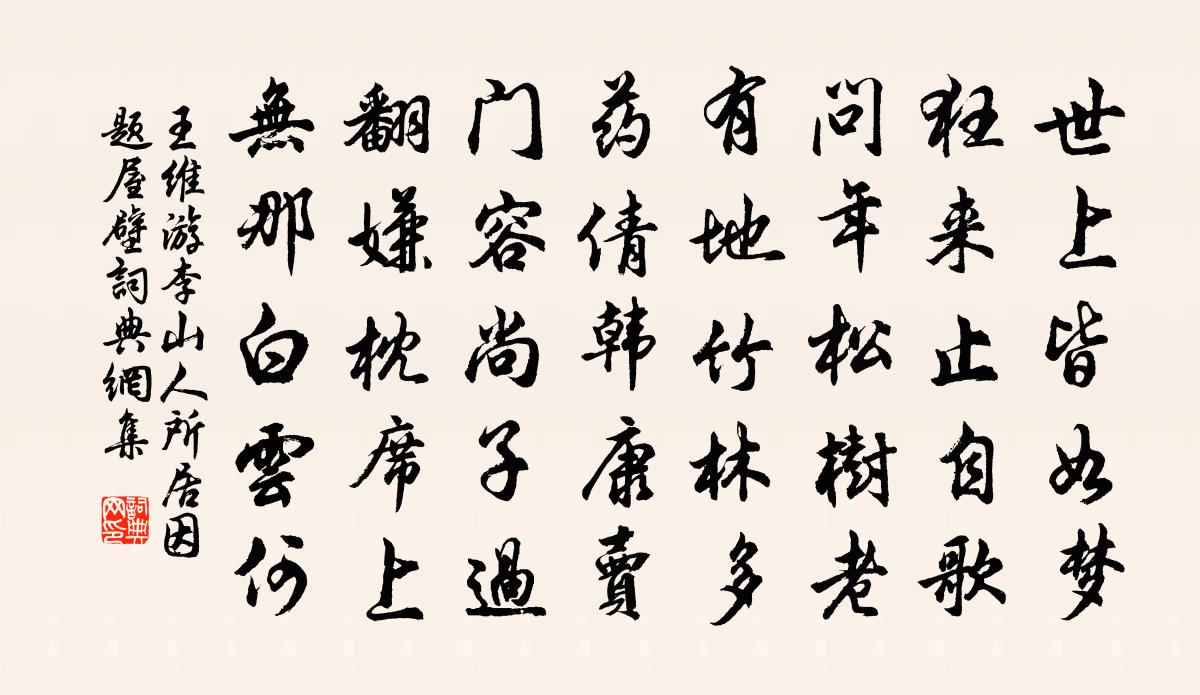 世上皆如梦
狂来止自歌
问年松樹老
有地竹林多
药倩韩康賣
门容尚子過
翻嫌枕席上
無那白雲何
王维游李山人所居因
题屋壁詞典網集
詞典
网印